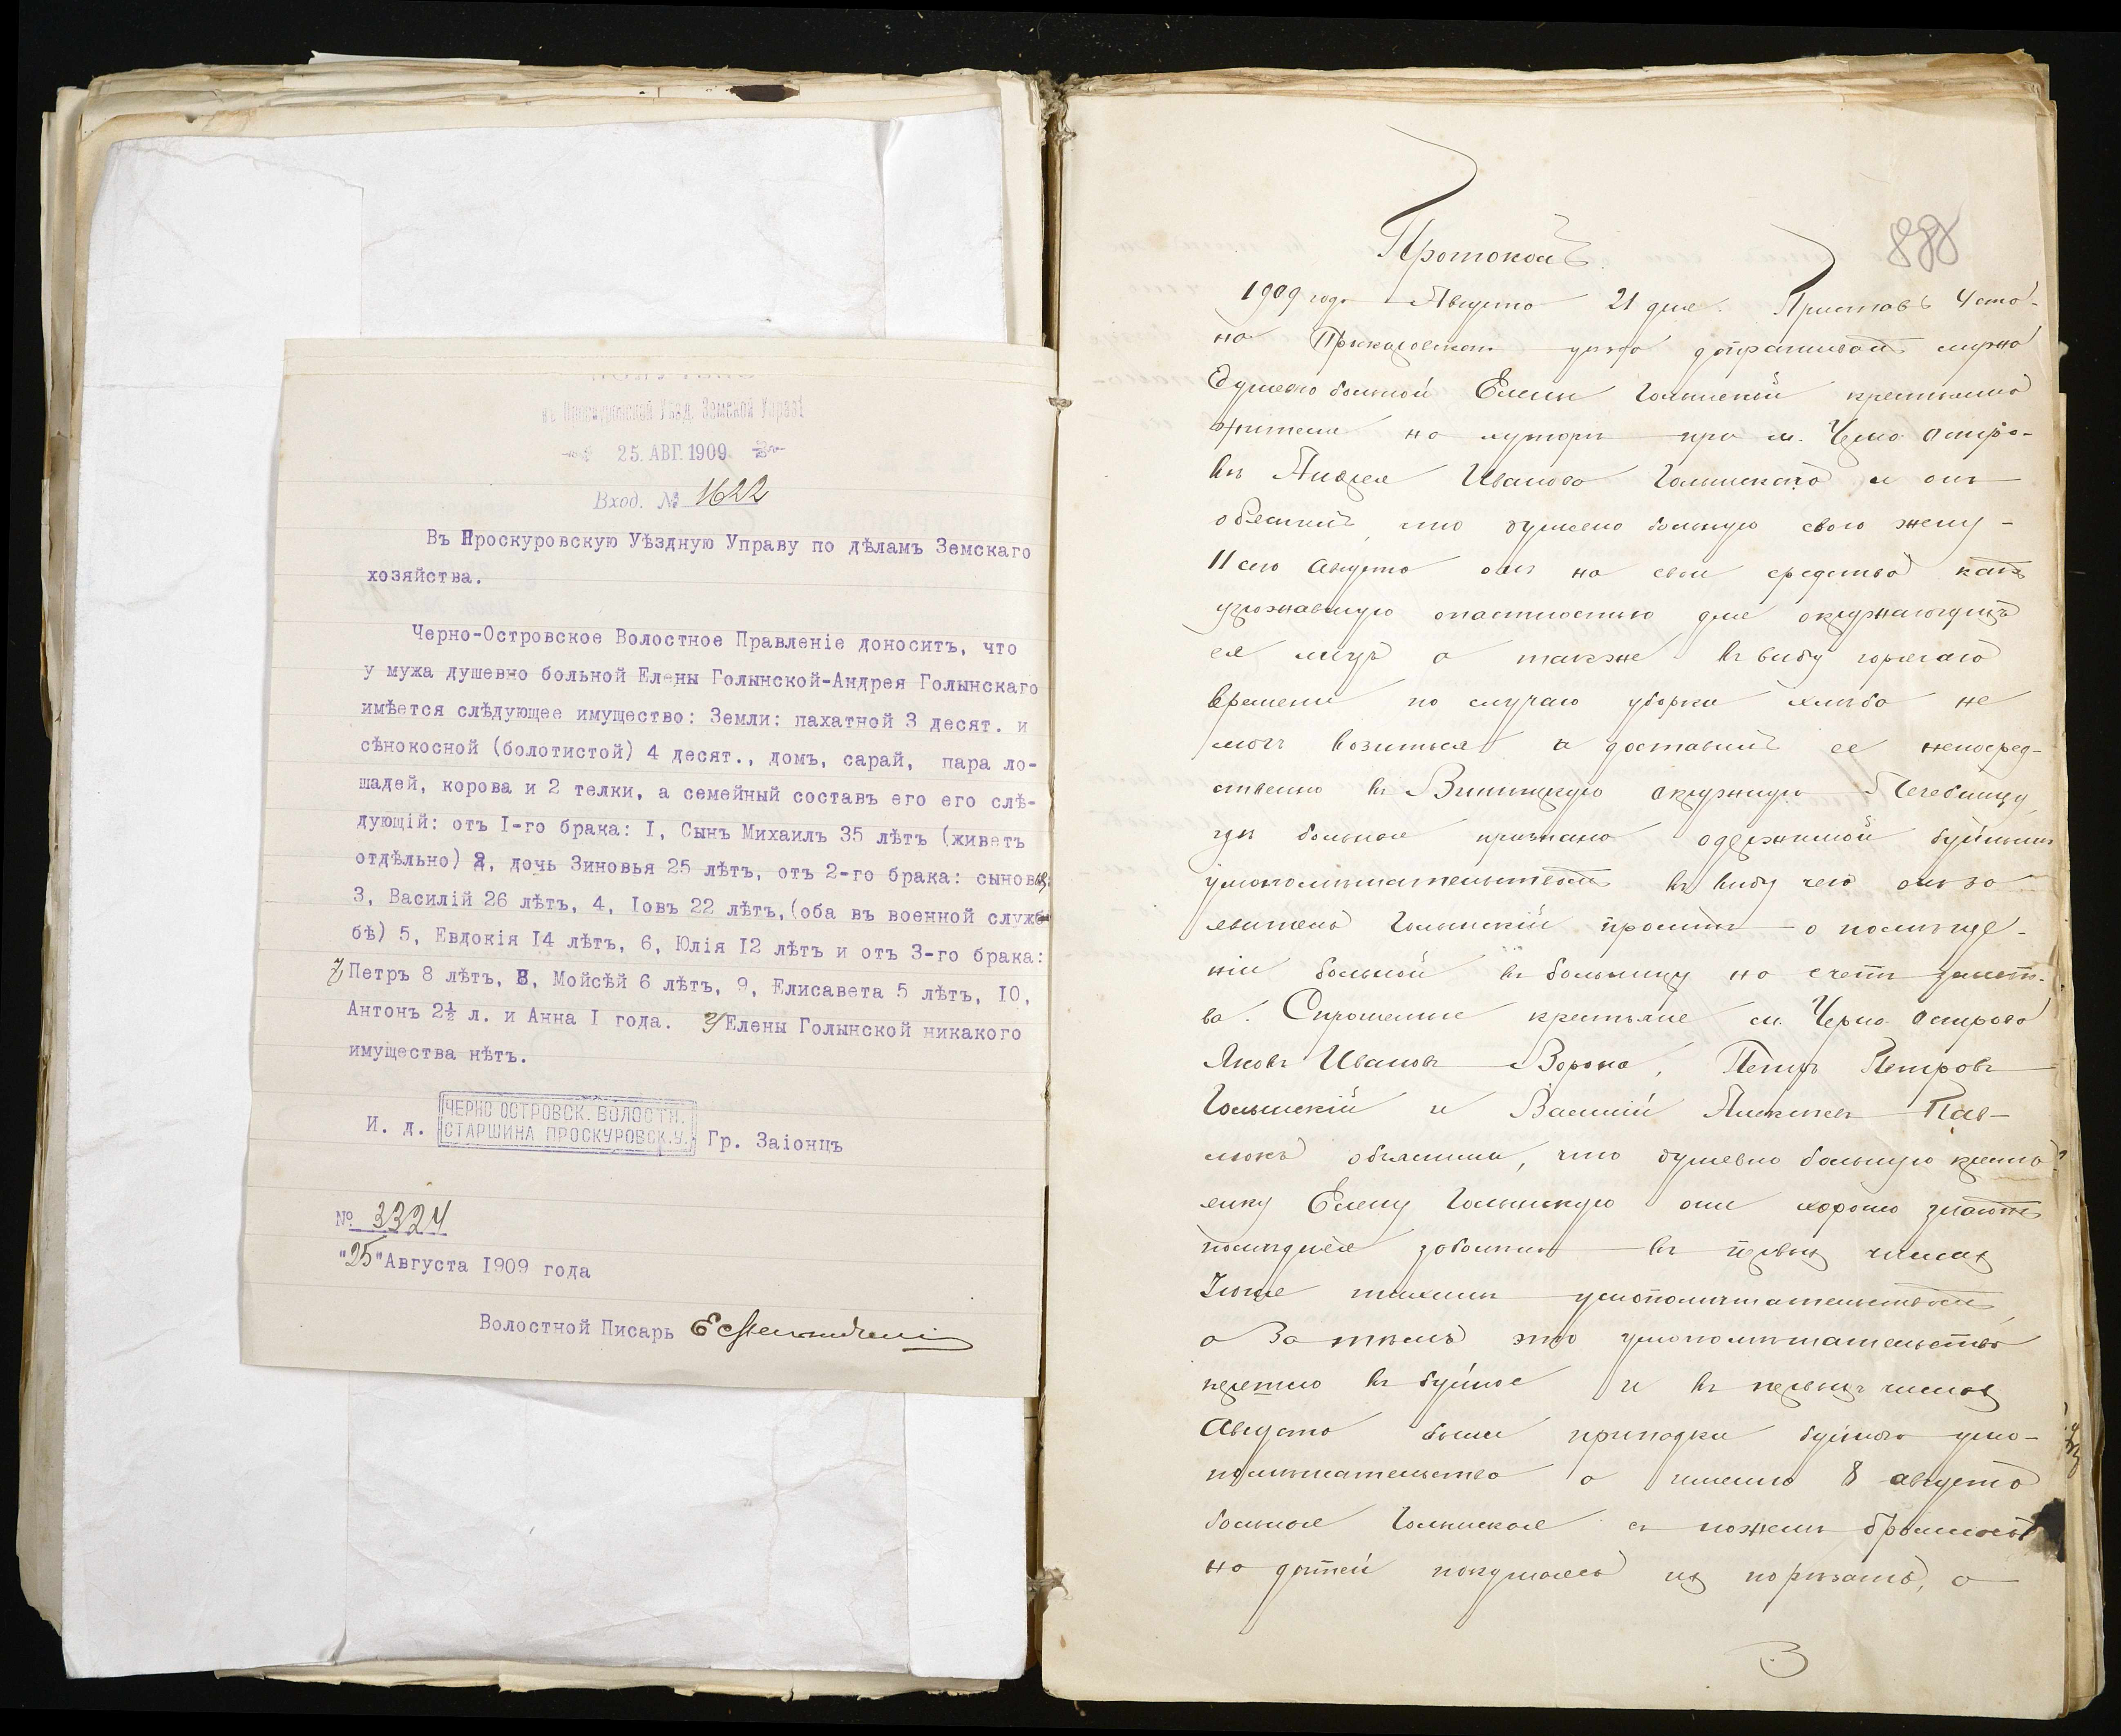 въ Проскуровской Уѣзд. Земской Управѣ
25. АВГ. 1909
Вход. № 1622
Въ Проскуровскую Уѣздную Управу по дѣламъ Земскаго
хозяйства.
Черно-Островское Волостное Правленіе доноситъ, что
у мужа душевно больной Елены Голынской-Андрея Голынскаго
имѣется слѣдующее имущество: Земли: пахатной 3 десят. и
сѣнокосной (болотистой) 4 десят., домъ, сарай, пара ло-
шадей, корова и 2 телки, а семейный составъ его его слѣ-
дующій: отъ I-го брака: I, Сынъ Михаилъ 35 лѣтъ (живетъ
отдѣльно) 2, дочь Зиновья 25 лѣтъ, отъ 2-го брака: сыновья
3, Василій 26 лѣтъ, 4, Іовъ 22 лѣтъ,(оба въ военной служ-
бѣ) 5, Евдокія I4 лѣтъ, 6, Юлія I2 лѣтъ и отъ 3-го брака:
7, Петръ 8 лѣтъ, 8, Мойсѣй 6 лѣтъ, 9, Елисавета 5 лѣтъ, I0,
Антонъ 2½ л. и Анна I года. У Елены Голынской никакого
имущества нѣтъ.
И. д. ЧЕРНО ОСТРОВСК. ВОЛОСТН.
СТАРШИНА ПРОСКУРОВСК.У. Гр. Заіонцъ
№ 3324
"25"Августа I909 года
Волостной Писарь
888
Протоколъ
1909 года Августа 21 дня. Приставъ 4 ста-
на Проскуровскаго уѣзда допрашивалъ мужа
душевно больной Елены Голынской крестьянина
жителя на хуторѣ при м. Черно Остро-
вѣ Андрея Иванова Голынскаго и онъ
объяснилъ, что душевно больную свою жену
11 сего Августа онъ на свои средства какъ
угрожавшую опастностью для окружающихъ
ея лицъ а также въ виду горячаго
времени по случаю уборки хлѣба не
могъ возиться и доставилъ ее непосред-
ственно въ Винницкую Окружную Лечебницу
гдѣ больная признана одержимой буйнымъ
умопомѣшательствомъ въ виду чего онъ за-
явитель Голынскій проситъ о помѣще-
ніи больной въ больницу на счетъ земст-
ва. Спрошенные крестьяне м. Черно Острова
Яковъ Ивановъ Ворона, Петръ Петровъ
Голынскій и Василій Алексѣевъ Пав-
люкъ объяснили, что душевно больную кресть-
янку Елену Голынскую они хорошо знаютъ
послѣдняя заболѣла въ первыхъ числахъ
Іюля тихимъ умопомѣшательствомъ,
а За тѣмъ это умопомѣшательство
перешло въ буйное и въ первыхъ числахъ
Августа были припадки буйнаго умо-
помѣшательства а именно 8 августа
больная Голынская съ ножемъ бросилась
на дѣтей покушаясь ихъ порѣзать, а